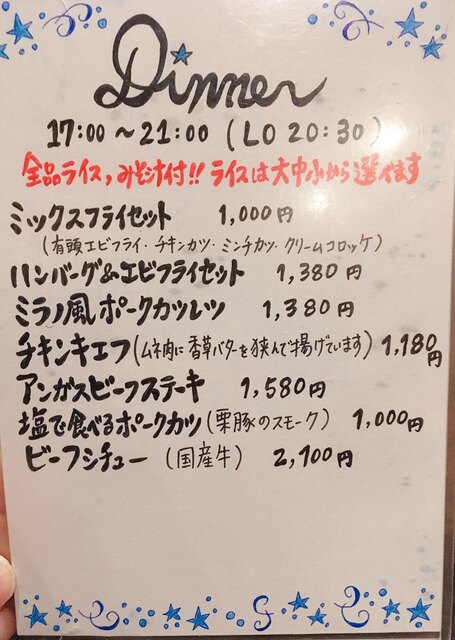 Dinner
17:00〜21:00 (LO 20:30)
全品ライス,みそ汁付!! ライスは大中小から選べます
ミックスフライセット 1,000円
(有頭エビフライ・チキンカツ・ミンチカツ・クリームコロッケ)
ハンバーグ&エビフライセット 1,380円
ミラノ風ポークカツレツ 1,380円
チキンキエフ(ムネ肉に香草バターを挟んで揚げています) 1,180円
アンガスビーフステーキ 1,580円
塩で食べるポークカツ(栗豚のスモーク) 1,000円
ビーフシチュー (国産牛) 2,100円